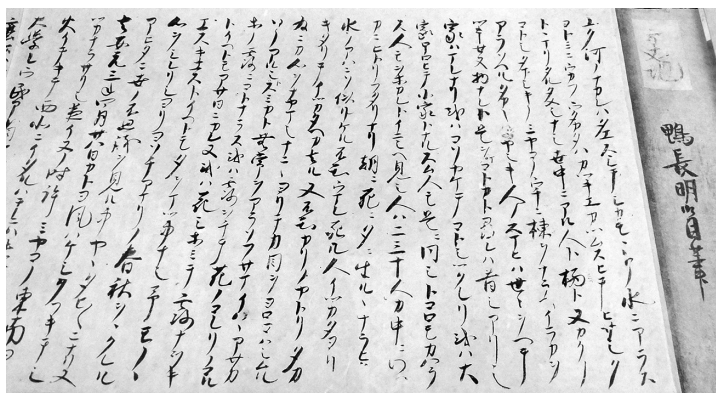 鴨長明自筆
ユク河ノナカレハタエスシテシカモヽトノ水ニアラス
ヨトミニウカフウタカタハカツキエカツムスヒテヒサシク
トヽマリタルタメシナシ世中ニアル人ト栖ト又カクノ
コトシタマシキノミヤコノウチニ棟ヲナラヘイラカヲ
アラソヘルタカキイヤシキ人ノスマヒハ世々ヲヘテ
ツキセヌ物ナレト是ヲマコトカト尋レハ昔シアリシ
家ハマレナリ或ハコソヤケテコトシツクレリ或ハ大
家ホロヒテ小家トナルスム人モ是ニ同シトコロモカハラ
ス人モヲホカレトイニシヘ見シ人ハ二三十人カ中ニワツ
カニヒトリフタリナリ朝ニ死ニ夕ニ生ルヽナラヒタヽ
水ノアハニソ似リケル不知ウマレ死ル人イツカタヨリ
キタリテイツカタヘカ去ル又不知カリノヤトリタカ
為ニカ心ヲナヤマシナニヽヨリテカ目ヲヨロコハシムル
ソノアルシトスミカト無常ヲアラソフサマイハヽアサカ
ホノ露ニコトナラス或ハ露ヲチテ花ノコレリノコル
トイヘトモアサ日ニカレヌ或ハ花シホミテ露ナヲキ
エスキエストイヘトモ夕ヲマツ事ナシ予モノヽ
心ヲシレリシヨリヨソチアマリノ春秋ヲヽクレル
アヒタニ世ノ不思議ヲ見ル事ヤヽタヒ〱ニナリヌ
去安元三年四月廿八日カトヨ風ハケシクフキテシ
ツカナラサリシ夜イヌノ時許ミヤコノ東南ヨリ
火イテキテ西北ニイタルハテニハ
大学レウ民部省